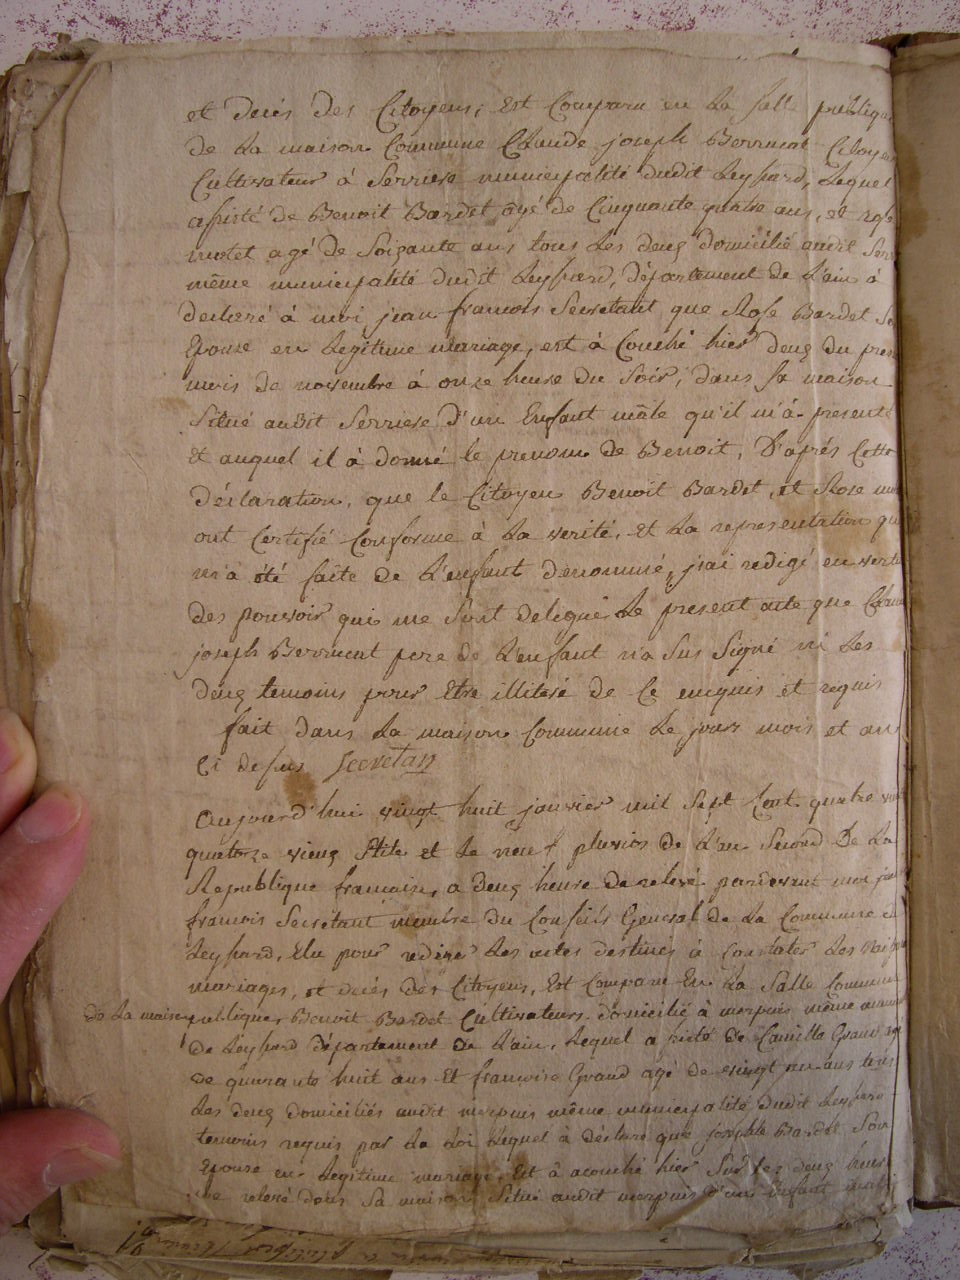 et decés des Citoyens, est Comparu en la salle publique
de La maison Commune Claude joseph Berrment Citoyen
Cultivateur à Serriere municipalité dudit Leyssard, Lequel
assisté de Benoit Bardet âgé de Cinquante quatre ans, et rose
motet agé de Soixante ans tous Les deux domicilié audit Ser
même municipalité dudit Leyssard, Département de L'ain à
declaré à moi jean francois Secretant que Rose Bardet Son
Epouse en Legitime mariage, est à Couché hier deux du pres
mois de novembre à onze heure du Soir, dans sa maison
Situé audit Serriere d'un Enfant mâle qu'il m'à presenté
Et auquel il à donné le prenom de Benoit, D'aprés Cette
déclaration, que le Citoyen Benoit Bardet, et Rose mo
ont Certifié Conforme à La verité, et La representation qui
m'à été faite de L'enfant denommé, j'ai redigé en vertu
des pouvoir qui me Sont delegué Le present acte que Claude
joseph Berrment pere de L'enfant n'a Sus Signé ni Les
deux temoins pour Etre illiteré de Ce enquis et requis
fait dans La maison Commune Le jours mois et an
Ci dessus Secretan
Aujourd'hui vingt huit janvier mil Sept Cent quatre vingt
quatorze vieux Stile et Le neuf pluvios de L'an Second De La
Republique francaise, a deux heure de relevé pardevant moi jean
francois Secretant membre du Conseils General de La Commune de
Leyssard, Elu pour rediger Les actes destinés à Constater Les Naiss
mariages, et decés des Citoyens, Est Comparu En La Salle Commune
de La maison publique, Benoit Bardet Cultivateurs domicilié à merpuis même muni
de Leyssard département de L'ain, Lequel assisté de Camille Grand agé
de quarante huit ans Et francoise Grand agé de vingt ans tous
Les deux domiciliés audit merpuis même municipalité dudit Leyssard
temoins requis par La Loi Lequel à déclaré que josephte Bardet Son
Epouse en Legitime mariage, Est à acouché hier Sur les deux heure
de relevé dans Sa maison Situé audit merpuis d'un Enfant male